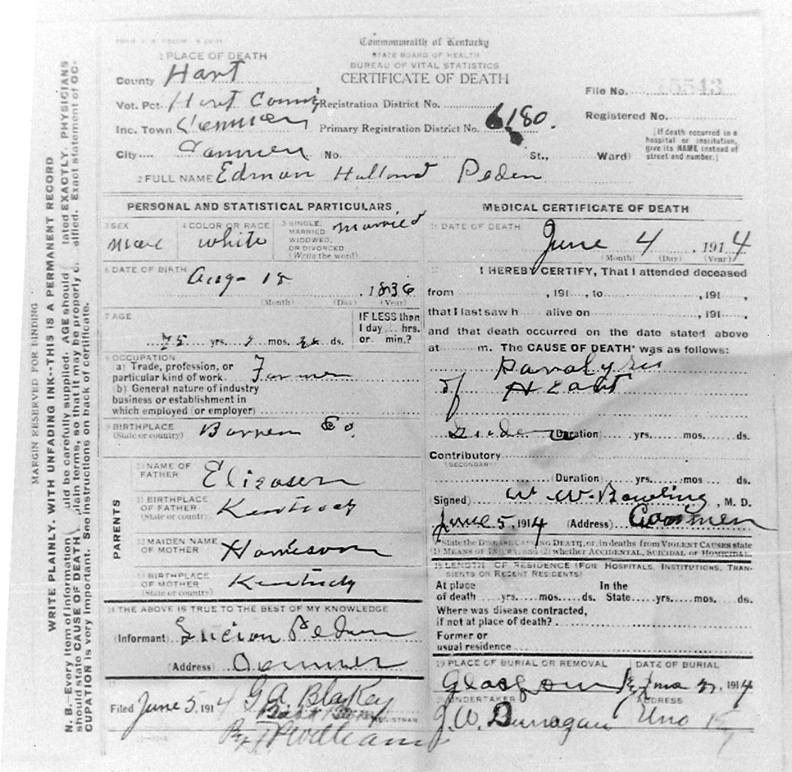 Commonwealth of Kentucky
STATE BOARD OF HEALTH
BUREAU OF VITAL STATISTICS
CERTIFICATE OF DEATH
1 PLACE OF DEATH
County Hart
Vot. Pct. Hart County Registration District No.
Inc. Town Primary Registration District No. 6180.
City No. St., Ward)
File No. 15543
Registered No.
[If death occurred in a hospital or institution, give its NAME instead of street and number.]
2 FULL NAME Edman Holland Peden
PERSONAL AND STATISTICAL PARTICULARS
3 SEX Male
4 COLOR OR RACE white
5 SINGLE, MARRIED, WIDOWED, OR DIVORCED (Write the word) married
6 DATE OF BIRTH Aug- 18, 1836
(Month) (Day) (Year)
7 AGE 75 yrs. 9 mos. ds.
IF LESS than 1 day ... hrs. or ... min.?
8 OCCUPATION
a) Trade, profession, or particular kind of work Farmer
b) General nature of industry business or establishment in which employed (or employer)
9 BIRTHPLACE (State or country) Barren Co.
PARENTS
10 NAME OF FATHER
11 BIRTHPLACE OF FATHER (State or country) Kentucky
12 MAIDEN NAME OF MOTHER
13 BIRTHPLACE OF MOTHER (State or country) Kentucky
14 THE ABOVE IS TRUE TO THE BEST OF MY KNOWLEDGE
(Informant) Lucian Peden
(Address)
15 Filed June 5, 1914 G A Blakey
REGISTRAR
MEDICAL CERTIFICATE OF DEATH
16 DATE OF DEATH June 4, 1914
(Month) (Day) (Year)
17 I HEREBY CERTIFY, That I attended deceased
from , 191 , to , 191 ,
that I last saw h alive on , 191 ,
and that death occurred on the date stated above
at m. The CAUSE OF DEATH was as follows:
Paralysis
of Heart
(Duration) yrs. mos. ds.
Contributory
(SECONDARY)
(Duration) yrs. mos. ds.
Signed W. W. Bowling, M. D.
June 5, 1914 (Address)
*State the DISEASE CAUSING DEATH, or, in deaths from VIOLENT CAUSES state
(1) MEANS OF INJURY; and (2) whether ACCIDENTAL, SUICIDAL or HOMICIDAL.
18 LENGTH OF RESIDENCE (FOR HOSPITALS, INSTITUTIONS, TRANSIENTS OR RECENT RESIDENTS)
At place of death yrs. mos. ds. In the State yrs. mos. ds.
Where was disease contracted, if not at place of death?
Former or usual residence
19 PLACE OF BURIAL OR REMOVAL DATE OF BURIAL
Glasgow 1914
20 UNDERTAKER ADDRESS
J. W. Dunagan Uno Ky
MARGIN RESERVED FOR BINDING
WRITE PLAINLY, WITH UNFADING INK--THIS IS A PERMANENT RECORD
N. B.--Every item of information uld be carefully supplied. AGE should tated EXACTLY. PHYSICIANS
should state CAUSE OF DEATH plain terms, so that it may be properly c alified. Exact statement of OC-
CUPATION is very important. See instructions on back of certificate.